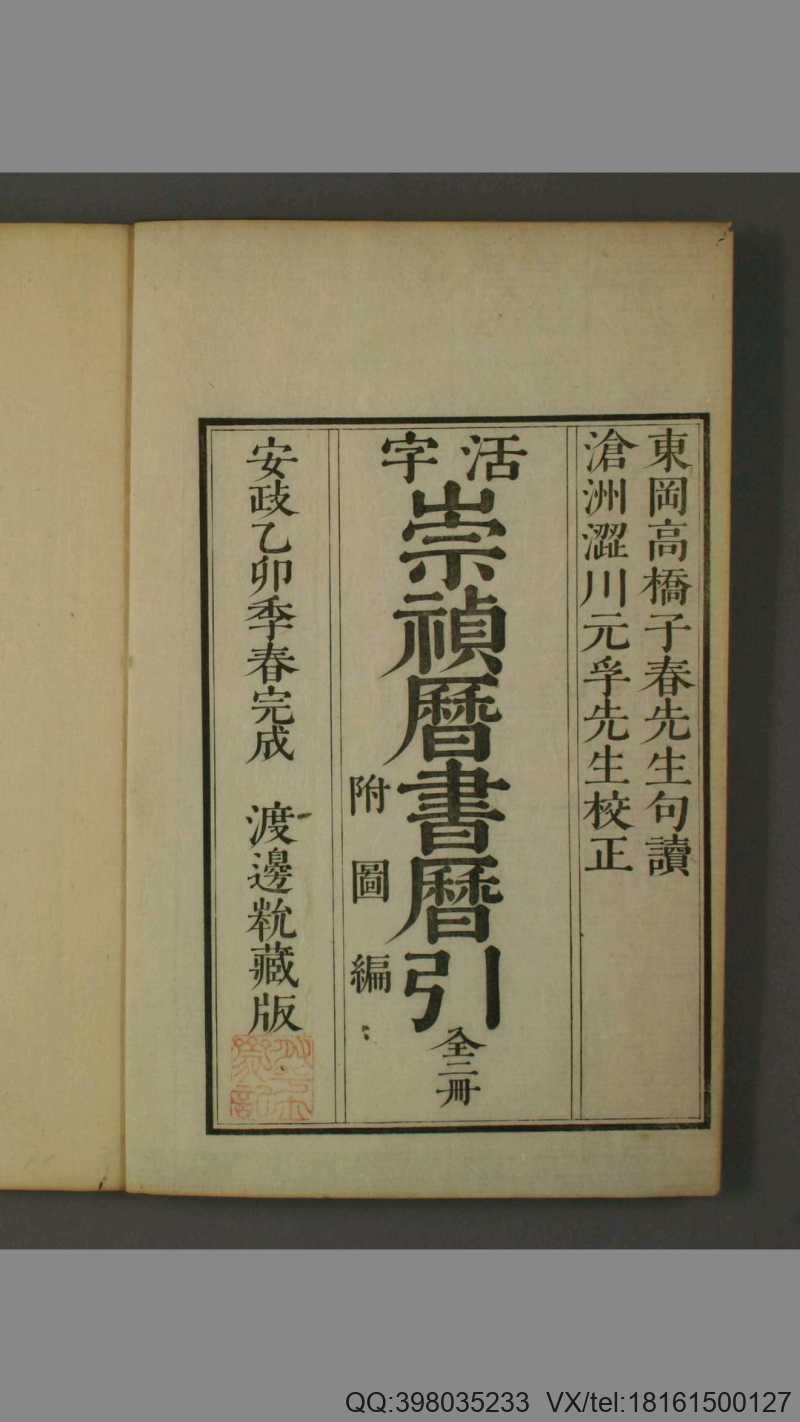 東岡高橋子春先生句讀
滄洲澀川元孚先生校正
活字
崇禎曆書曆引
全二冊
附圖編
安政乙卯季春完成 渡邊靱藏版
QQ:398035233 VX/tel:18161500127